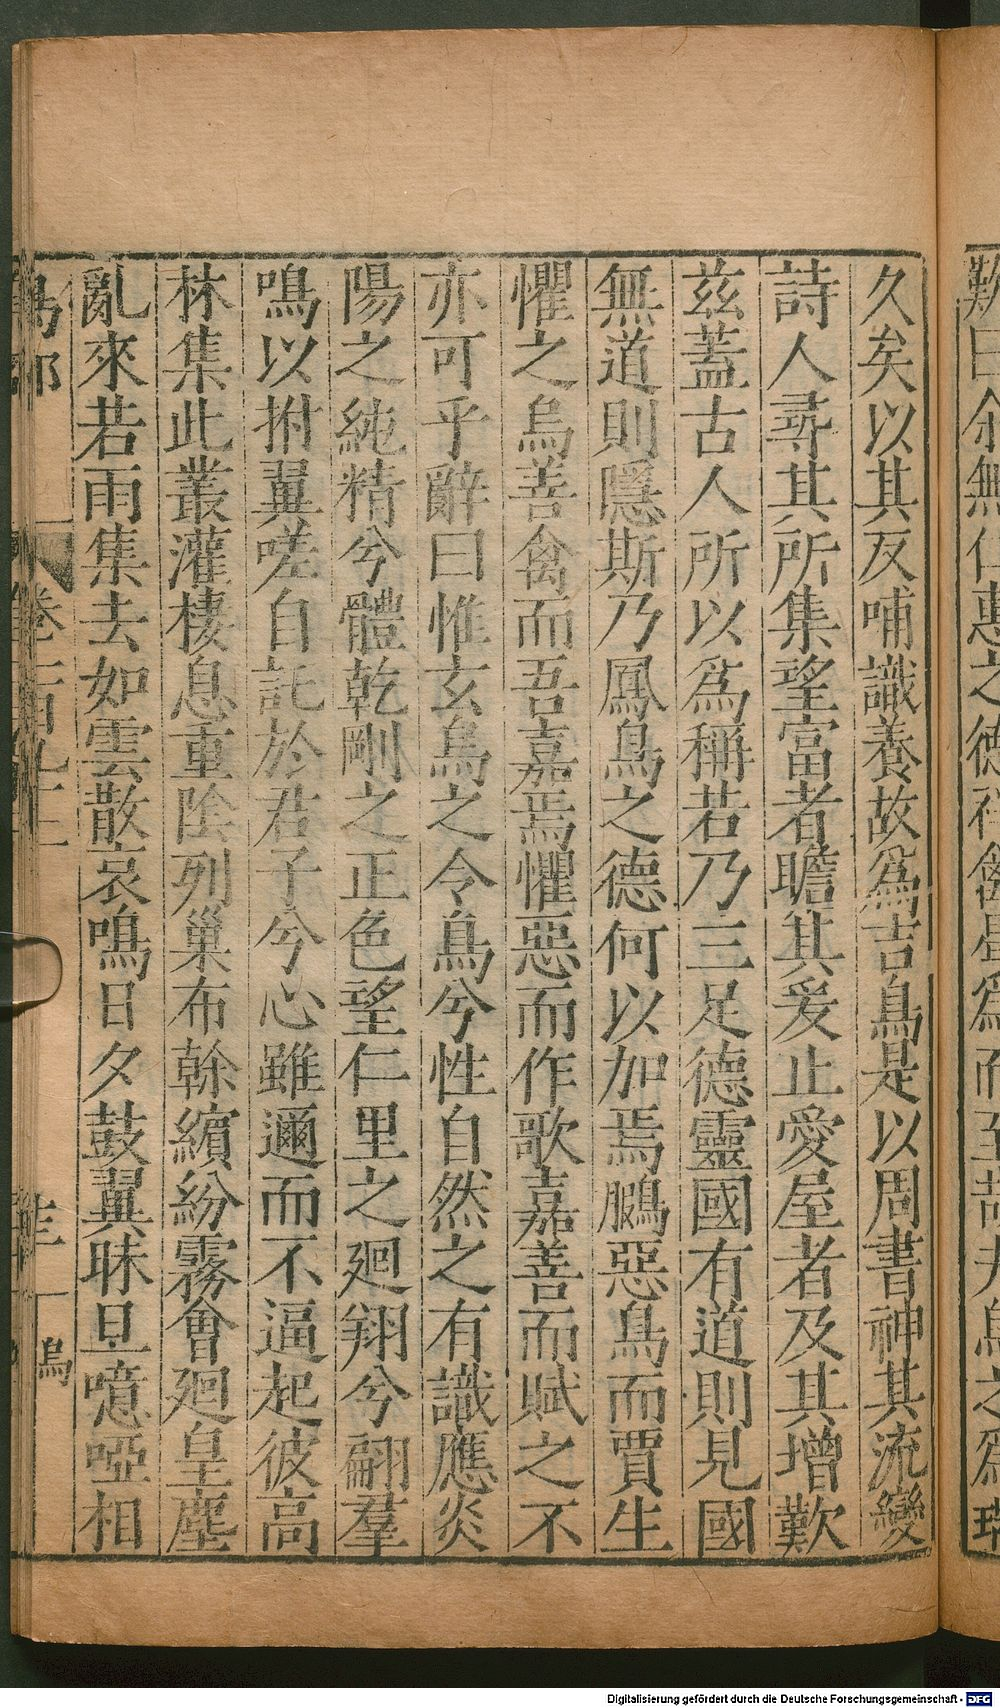 歎曰余無仁惠之德祥禽曷爲而至哉夫烏之爲瑞
久矣以其反哺識養故爲吉鳥是以周書神其流變
詩人尋其所集望富者瞻其爰止愛屋者及其增歎
茲蓋古人所以爲稱若乃三足德靈國有道則見國
無道則隱斯乃鳳鳥之德何以加焉鵩惡鳥而賈生
懼之烏善禽而吾嘉焉懼惡而作歌嘉善而賦之不
亦可乎辭曰惟玄烏之令鳥兮性自然之有識應炎
陽之純精兮體乾剛之正色望仁里之廻翔兮翩羣
鳴以拊翼嗟自託於君子兮心雖邇而不逼起彼高
林集此叢灌棲息重陰列巢布幹繽紛霧會廻皇塵
亂來若雨集去如雲散哀鳴日夕鼓翼昧旦噫啞相
鳥部
烏
Digitalisierung gefördert durch die Deutsche Forschungsgemeinschaft - DFG